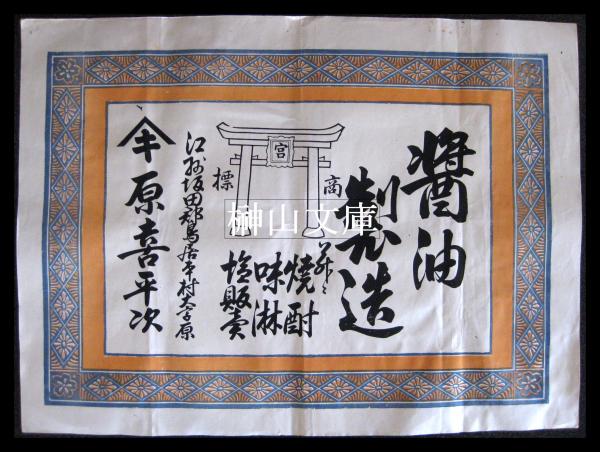 醬油
製造
商標
宮
焼酎
味淋
塩販賣
江州坂田郡鳥居本村大字原
原喜平次
榊山文庫